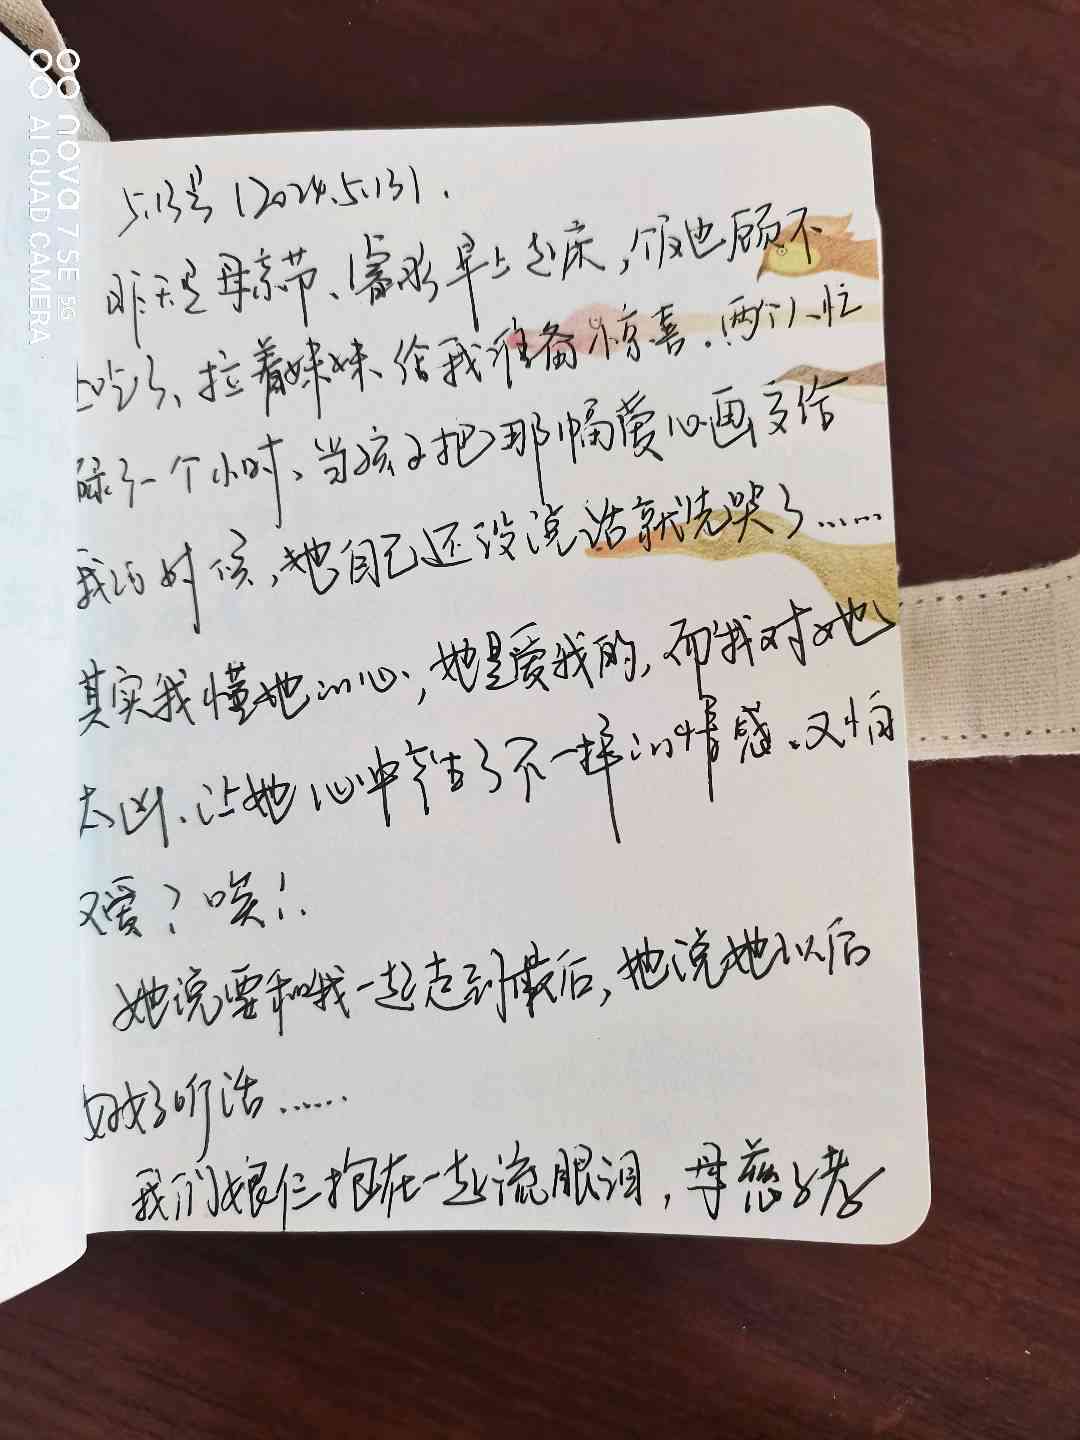 nova 7 SE 5G
AI QUAD CAMERA
5.13号（2024.5.13）.
昨天是母亲节、睿彤早上起床，饭也顾不
上吃了、拉着妹妹给我准备惊喜.两个人忙
碌了一个小时、当孩子把那幅爱心画交给
我的时候，她自己还没说话就先哭了……
其实我懂她的心，她是爱我的，而我对她
太凶、让她心中产生了不一样的情感、又怕
又爱？唉！.
她说要和我一起走到最后，她说她以后
好好听话……
我们娘仨抱在一起流眼泪，母慈子孝